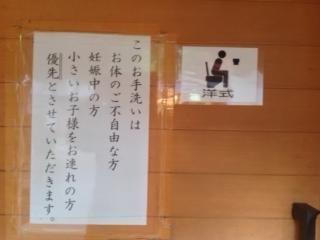 このお手洗いは
お体のご不自由な方
妊娠中の方
小さいお子様をお連れの方
優先とさせていただきます。
洋式